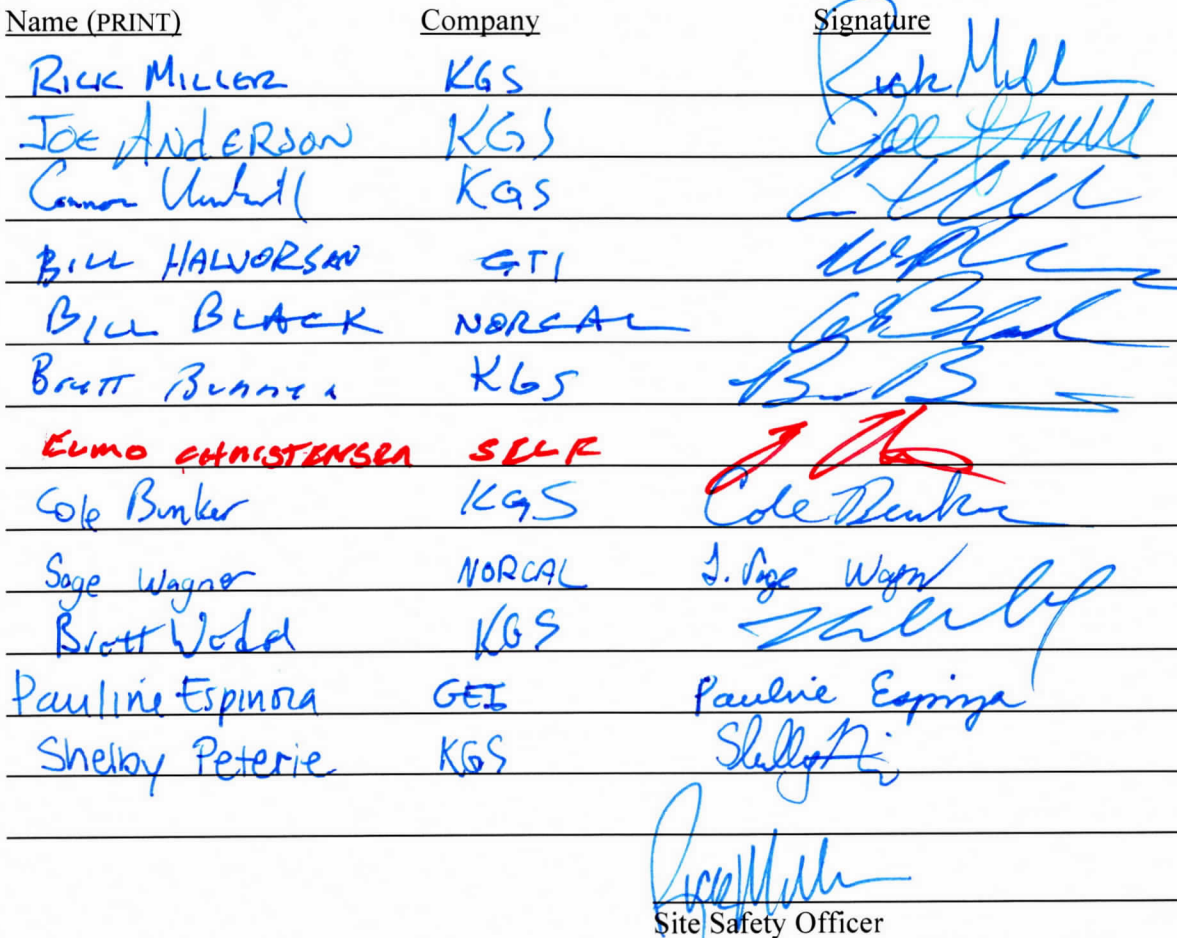 Name (PRINT) Company Signature
RICK MILLER KGS Rick Mill
JOE ANDERSON KGS Joe
Connor KGS
BILL HALVORSAN GTI
BILL BLACK NORCAL Black
Brett KGS
ELMO CHRISTENSEN SELF
Cole Bunker KGS Cole Bunker
Sage Wagner NORCAL J. Sage Wagner
Brett Wedel KGS
Pauline Espinoza GEI Pauline Espinoza
Shelby Peterie KGS Shelby
Rick Mill
Site Safety Officer